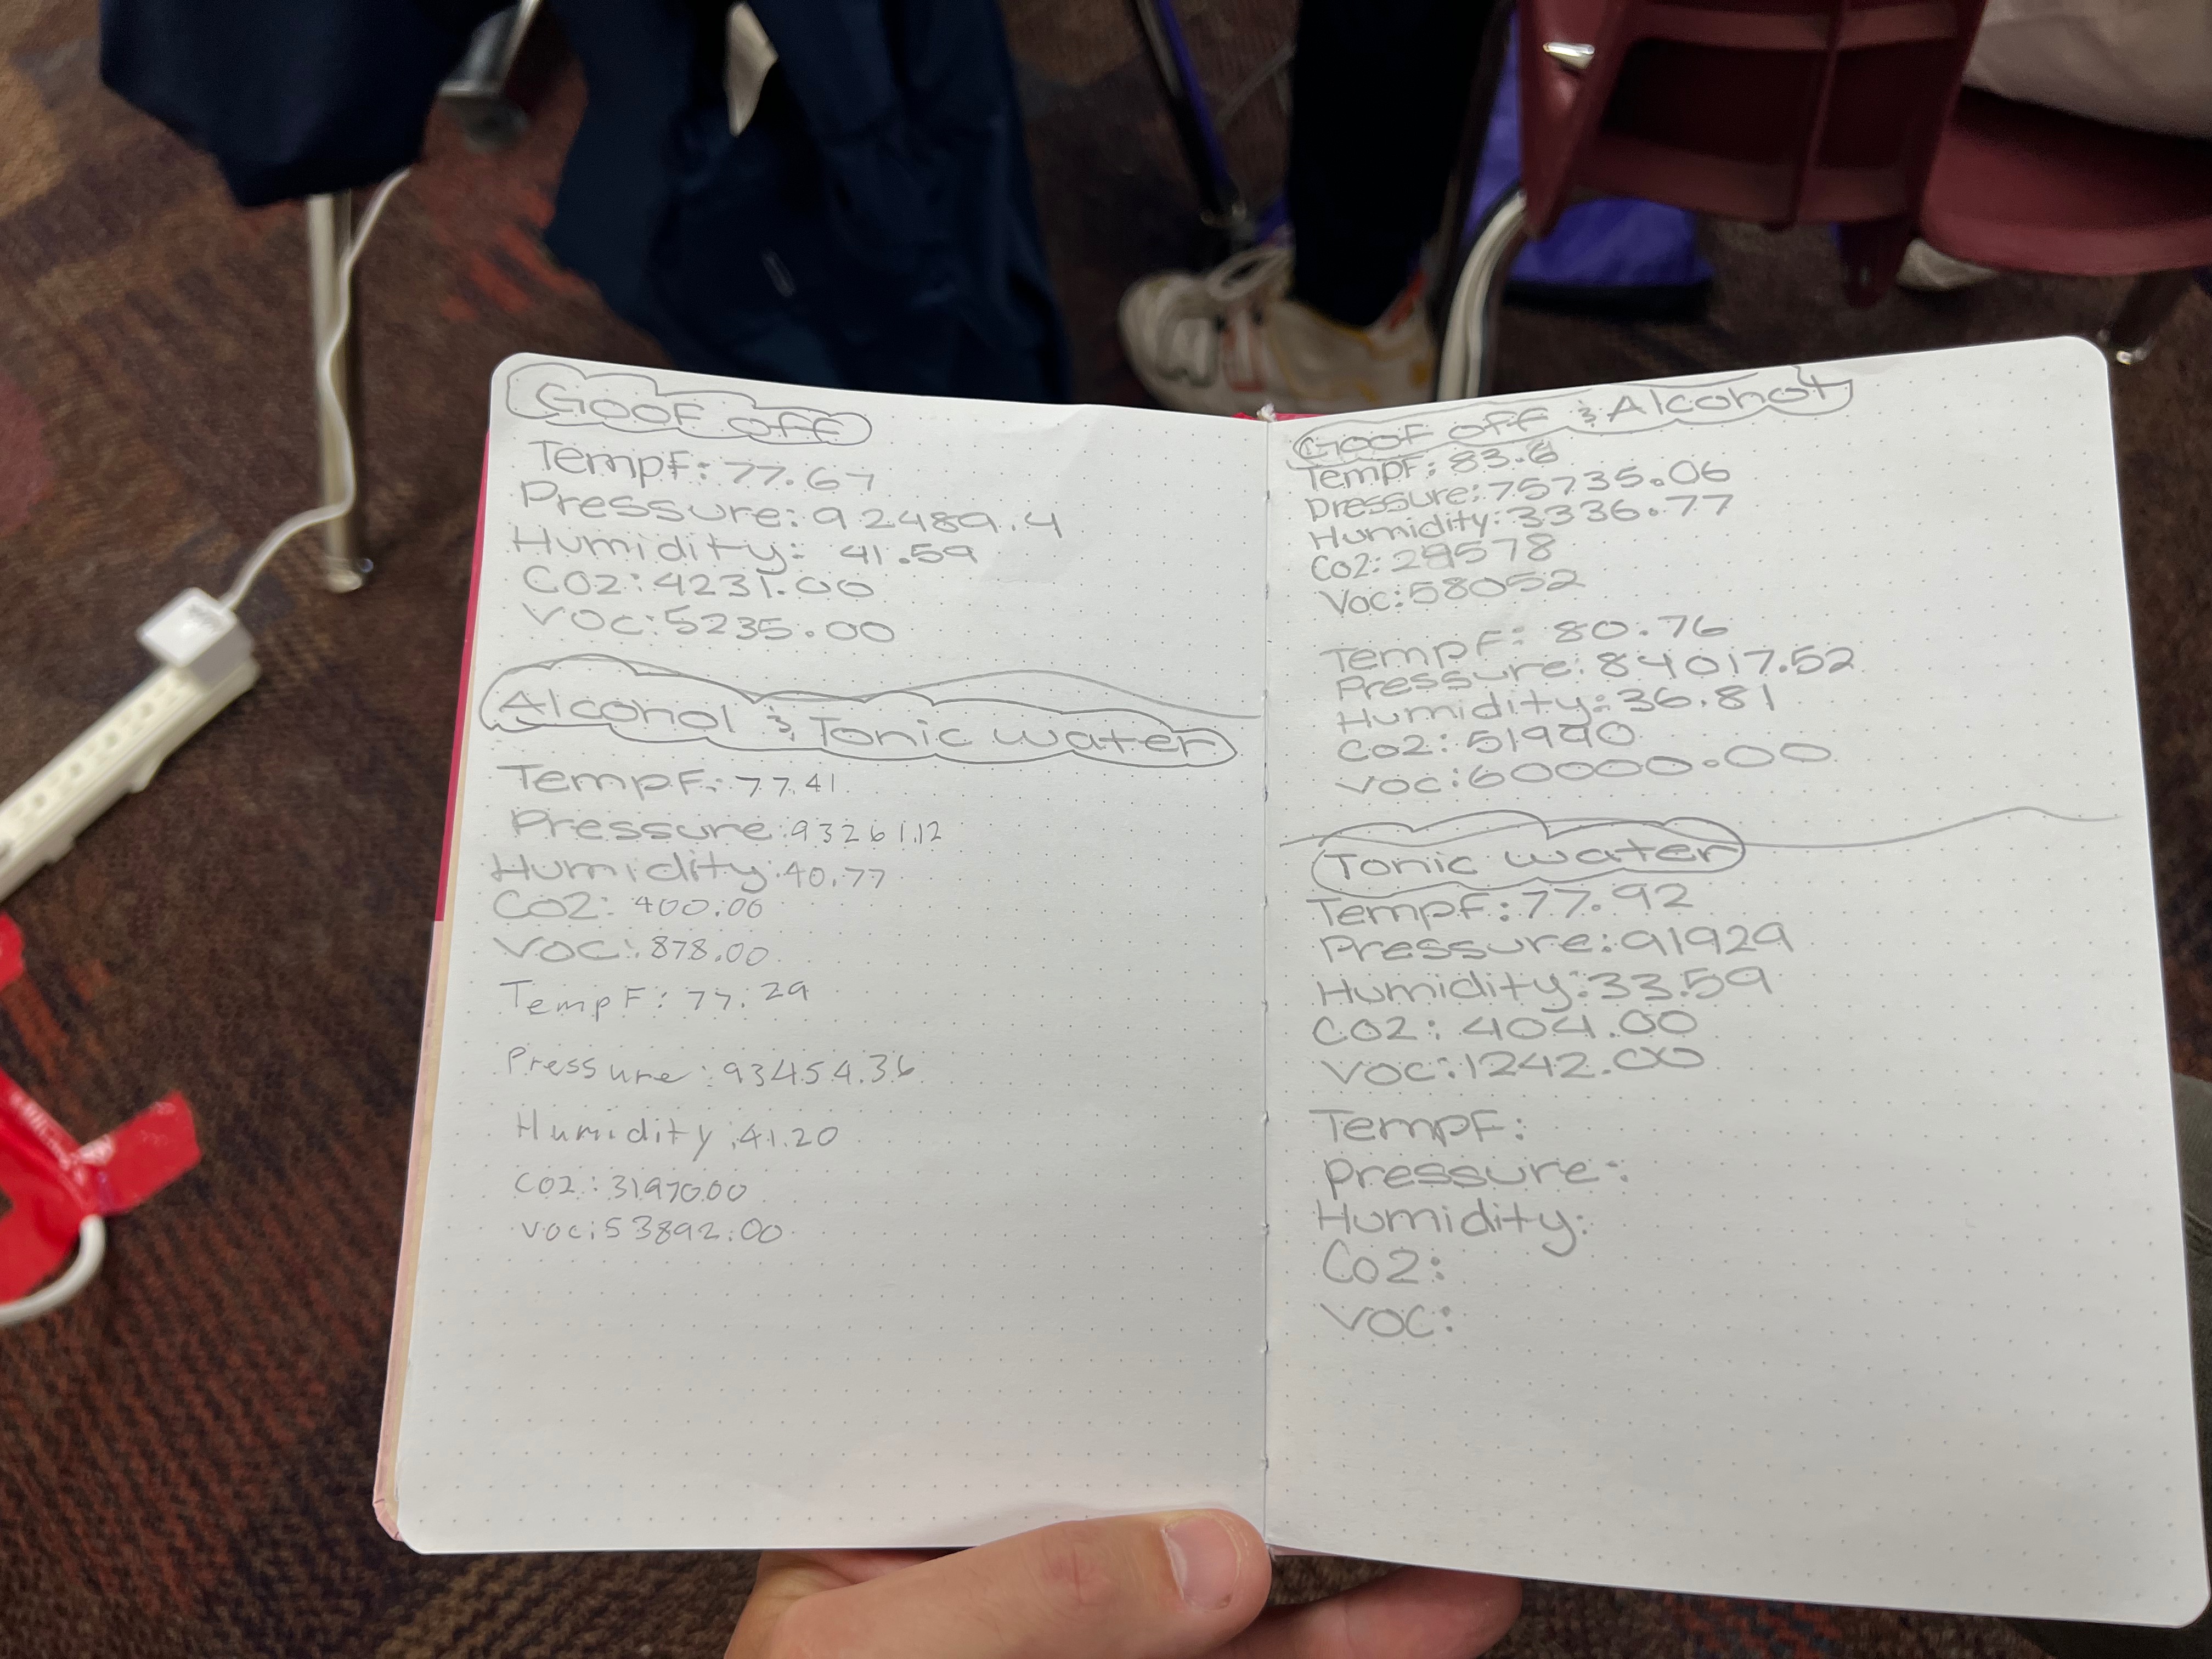 Goof off
TempF: 77.67
Pressure: 92489.4
Humidity: 41.59
CO2: 4231.00
VOC: 5235.00
Alcohol & Tonic water
TempF: 77.41
Pressure: 93261.12
Humidity: 40.77
CO2: 400.00
VOC: 878.00
TempF: 77.29
Pressure: 93454.36
Humidity: 41.20
CO2: 31970.00
VOC: 53892.00
Goof off & Alcohol
TempF: 83.6
Pressure: 75735.06
Humidity: 3336.77
Co2: 29578
Voc: 58052
TempF: 80.76
Pressure: 84017.52
Humidity: 36.81
CO2: 51990
VOC: 60000.00
Tonic water
TempF: 77.92
Pressure: 91929
Humidity: 33.59
CO2: 404.00
VOC: 1242.00
TempF:
Pressure:
Humidity:
Co2:
VOC: